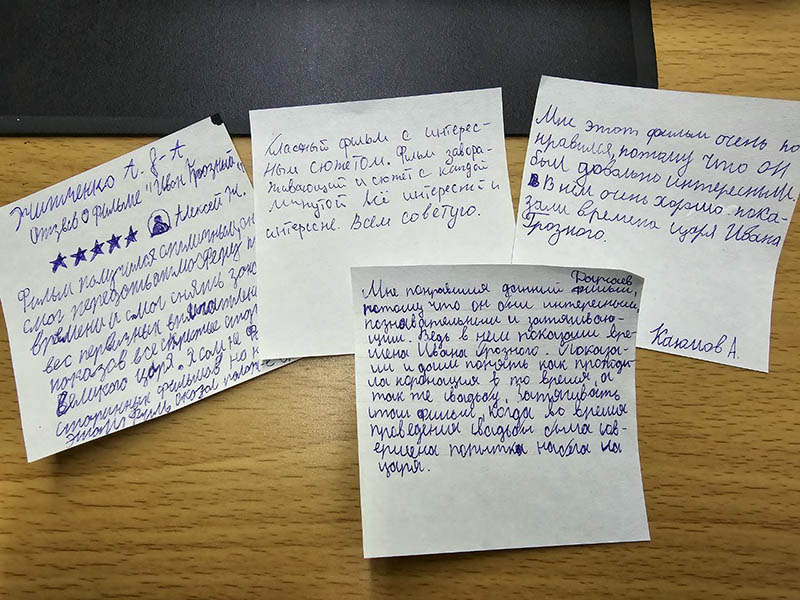 Житченко А. 8-А
Отзыв о фильме "Иван Грозный"
Алексей Ж.
Фильм получился отличным, он
смог передать атмосферу
времени и смог снять
вес первичных
показов все
Великого царя. Я сам не ф
старинных фильмов но
этот филь оказал
Классный фильм с интерес-
ным сюжетом. Фильм завора-
живающий и сюжет с каждой
минутой всё интересней и
интересне. Всем советую.
Мне этот фильм очень по
нравился, потому что он
был довально интересным.
В нём очень хорошо пока-
зали времена царя Ивана
Грозного.
Каюмов А.
Мне понравился данный фильм,
потому что он был интересным,
познавательным и затягиваю-
щим. Ведь в нем показали вре-
мена Ивана Грозного. Показа-
ли и дали понять как проходи-
ла коронация в то время, а
так же свадьбу. Затягивать
стал фильм, когда во время
проведения свадьбы была сов-
ершена попытка набега на
царя.